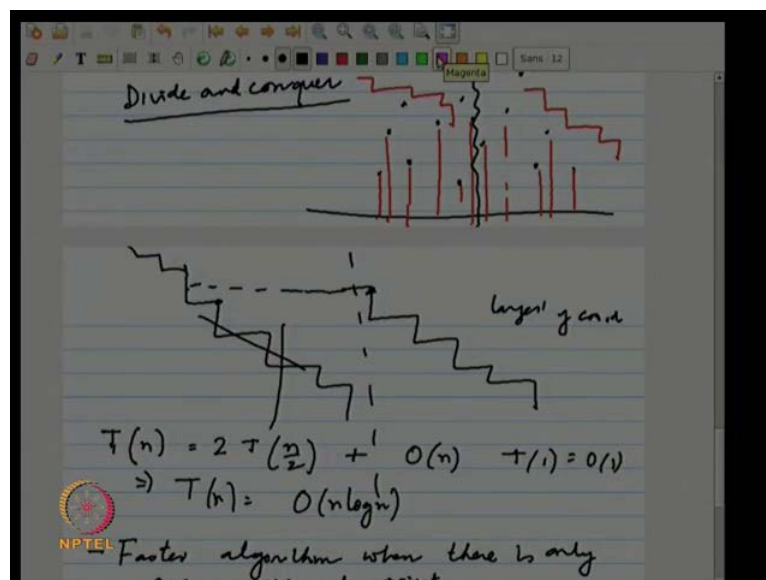 T
Sans 12
Magenta
Divide and conquer
largest y coord
T(n) = 2 T(n/2) + O(n) T(1) = O(1)
⇒ T(n) = O(n log n)
NPTEL
- Faster algorithm when there is only